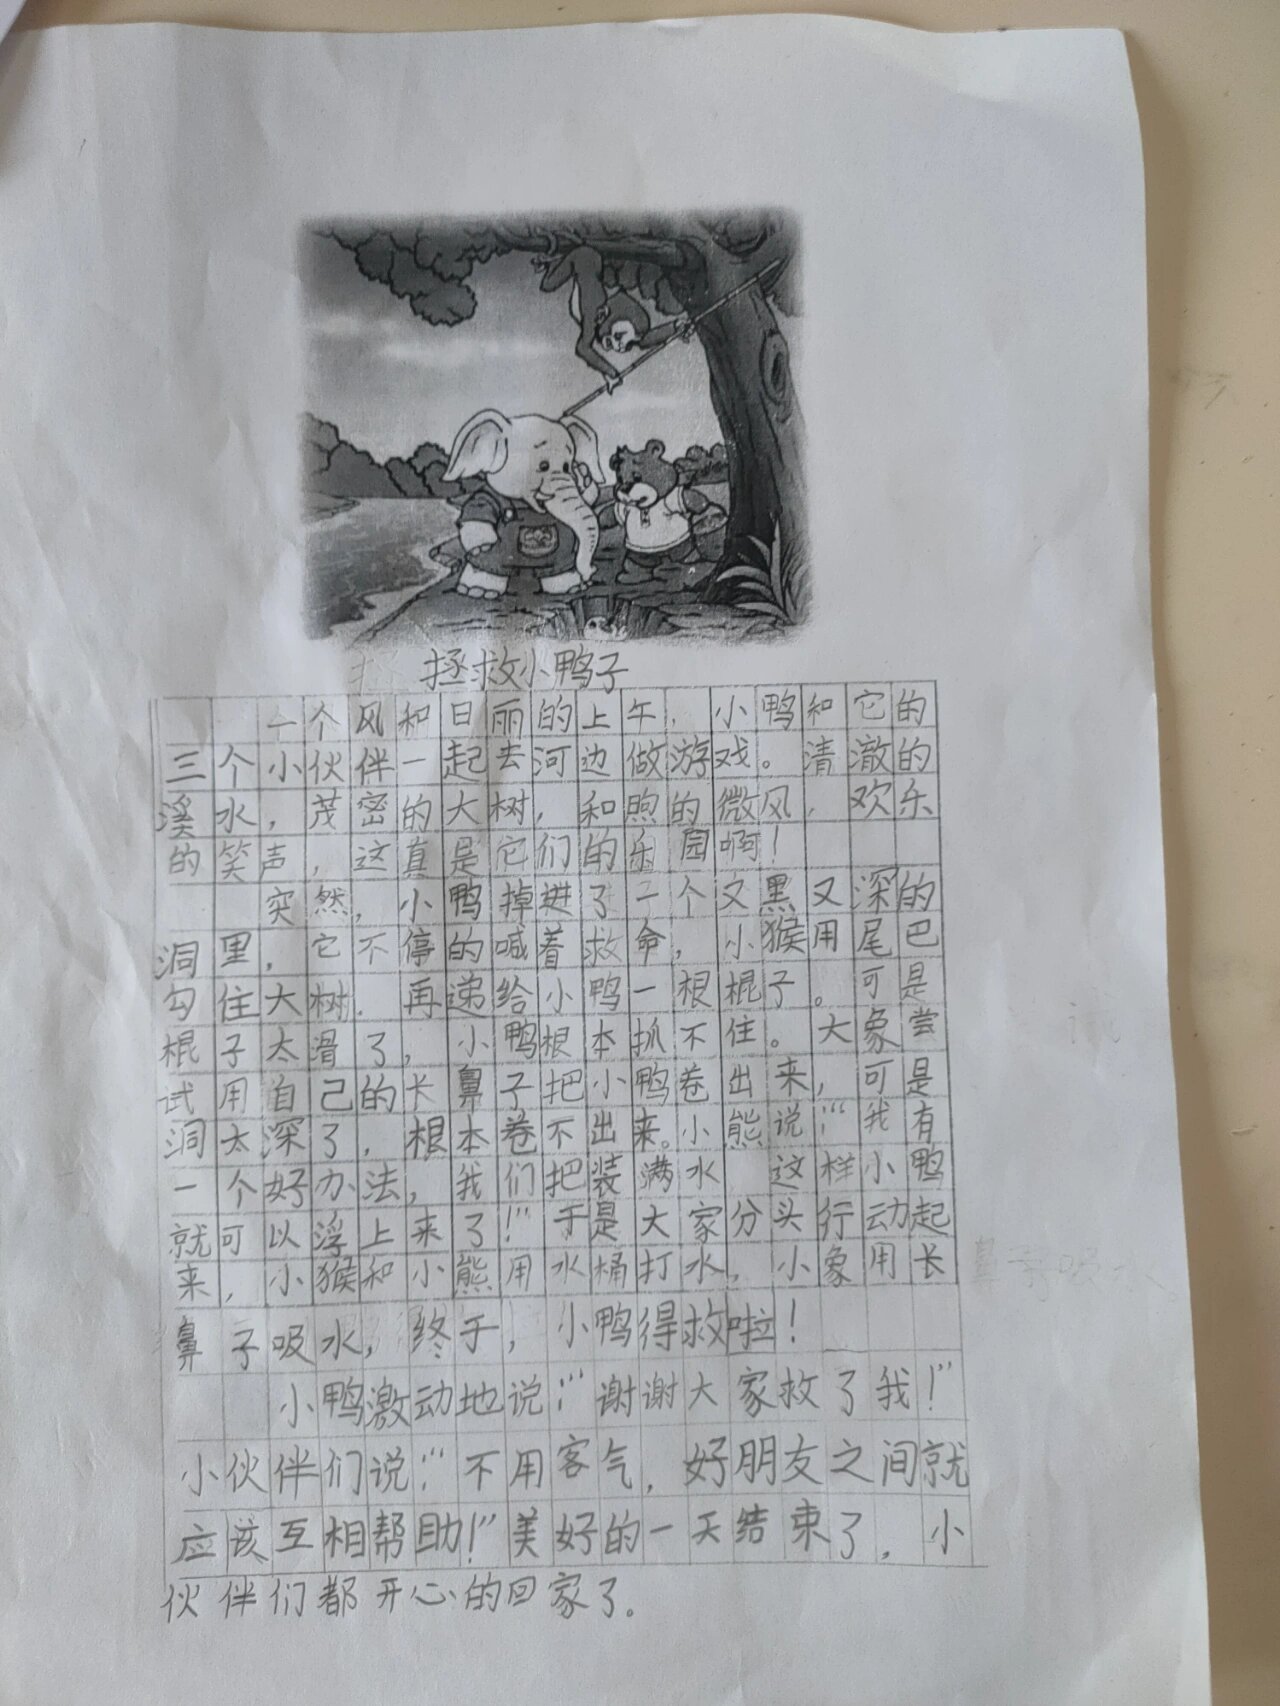 拯救小鸭子
一个风和日丽的上午，小鸭和它的
三个小伙伴一起去河边做游戏。清澈的
溪水，茂密的大树，和煦的微风，欢乐
的笑声，这真是它们的乐园啊！
突然，小鸭掉进了一个又黑又深的
洞里，它不停的喊着救命，小猴用尾巴
勾住大树．再递给小鸭一根棍子。可是
棍子太滑了，小鸭根本抓不住。大象尝
试用自己的长鼻子把小鸭卷出来，可是
洞太深了，根本卷不出来。小熊说：“我有
一个好办法，我们把装满水 这样小鸭
就可以浮上来了！”于是大家分头行动起
来，小猴和小熊用水桶打水，小象用长
鼻子吸水，终于，小鸭得救啦！
小鸭激动地说：“谢谢大家救了我！”
小伙伴们说：“不用客气，好朋友之间就
应该互相帮助！”美好的一天结束了，小
伙伴们都开心的回家了。